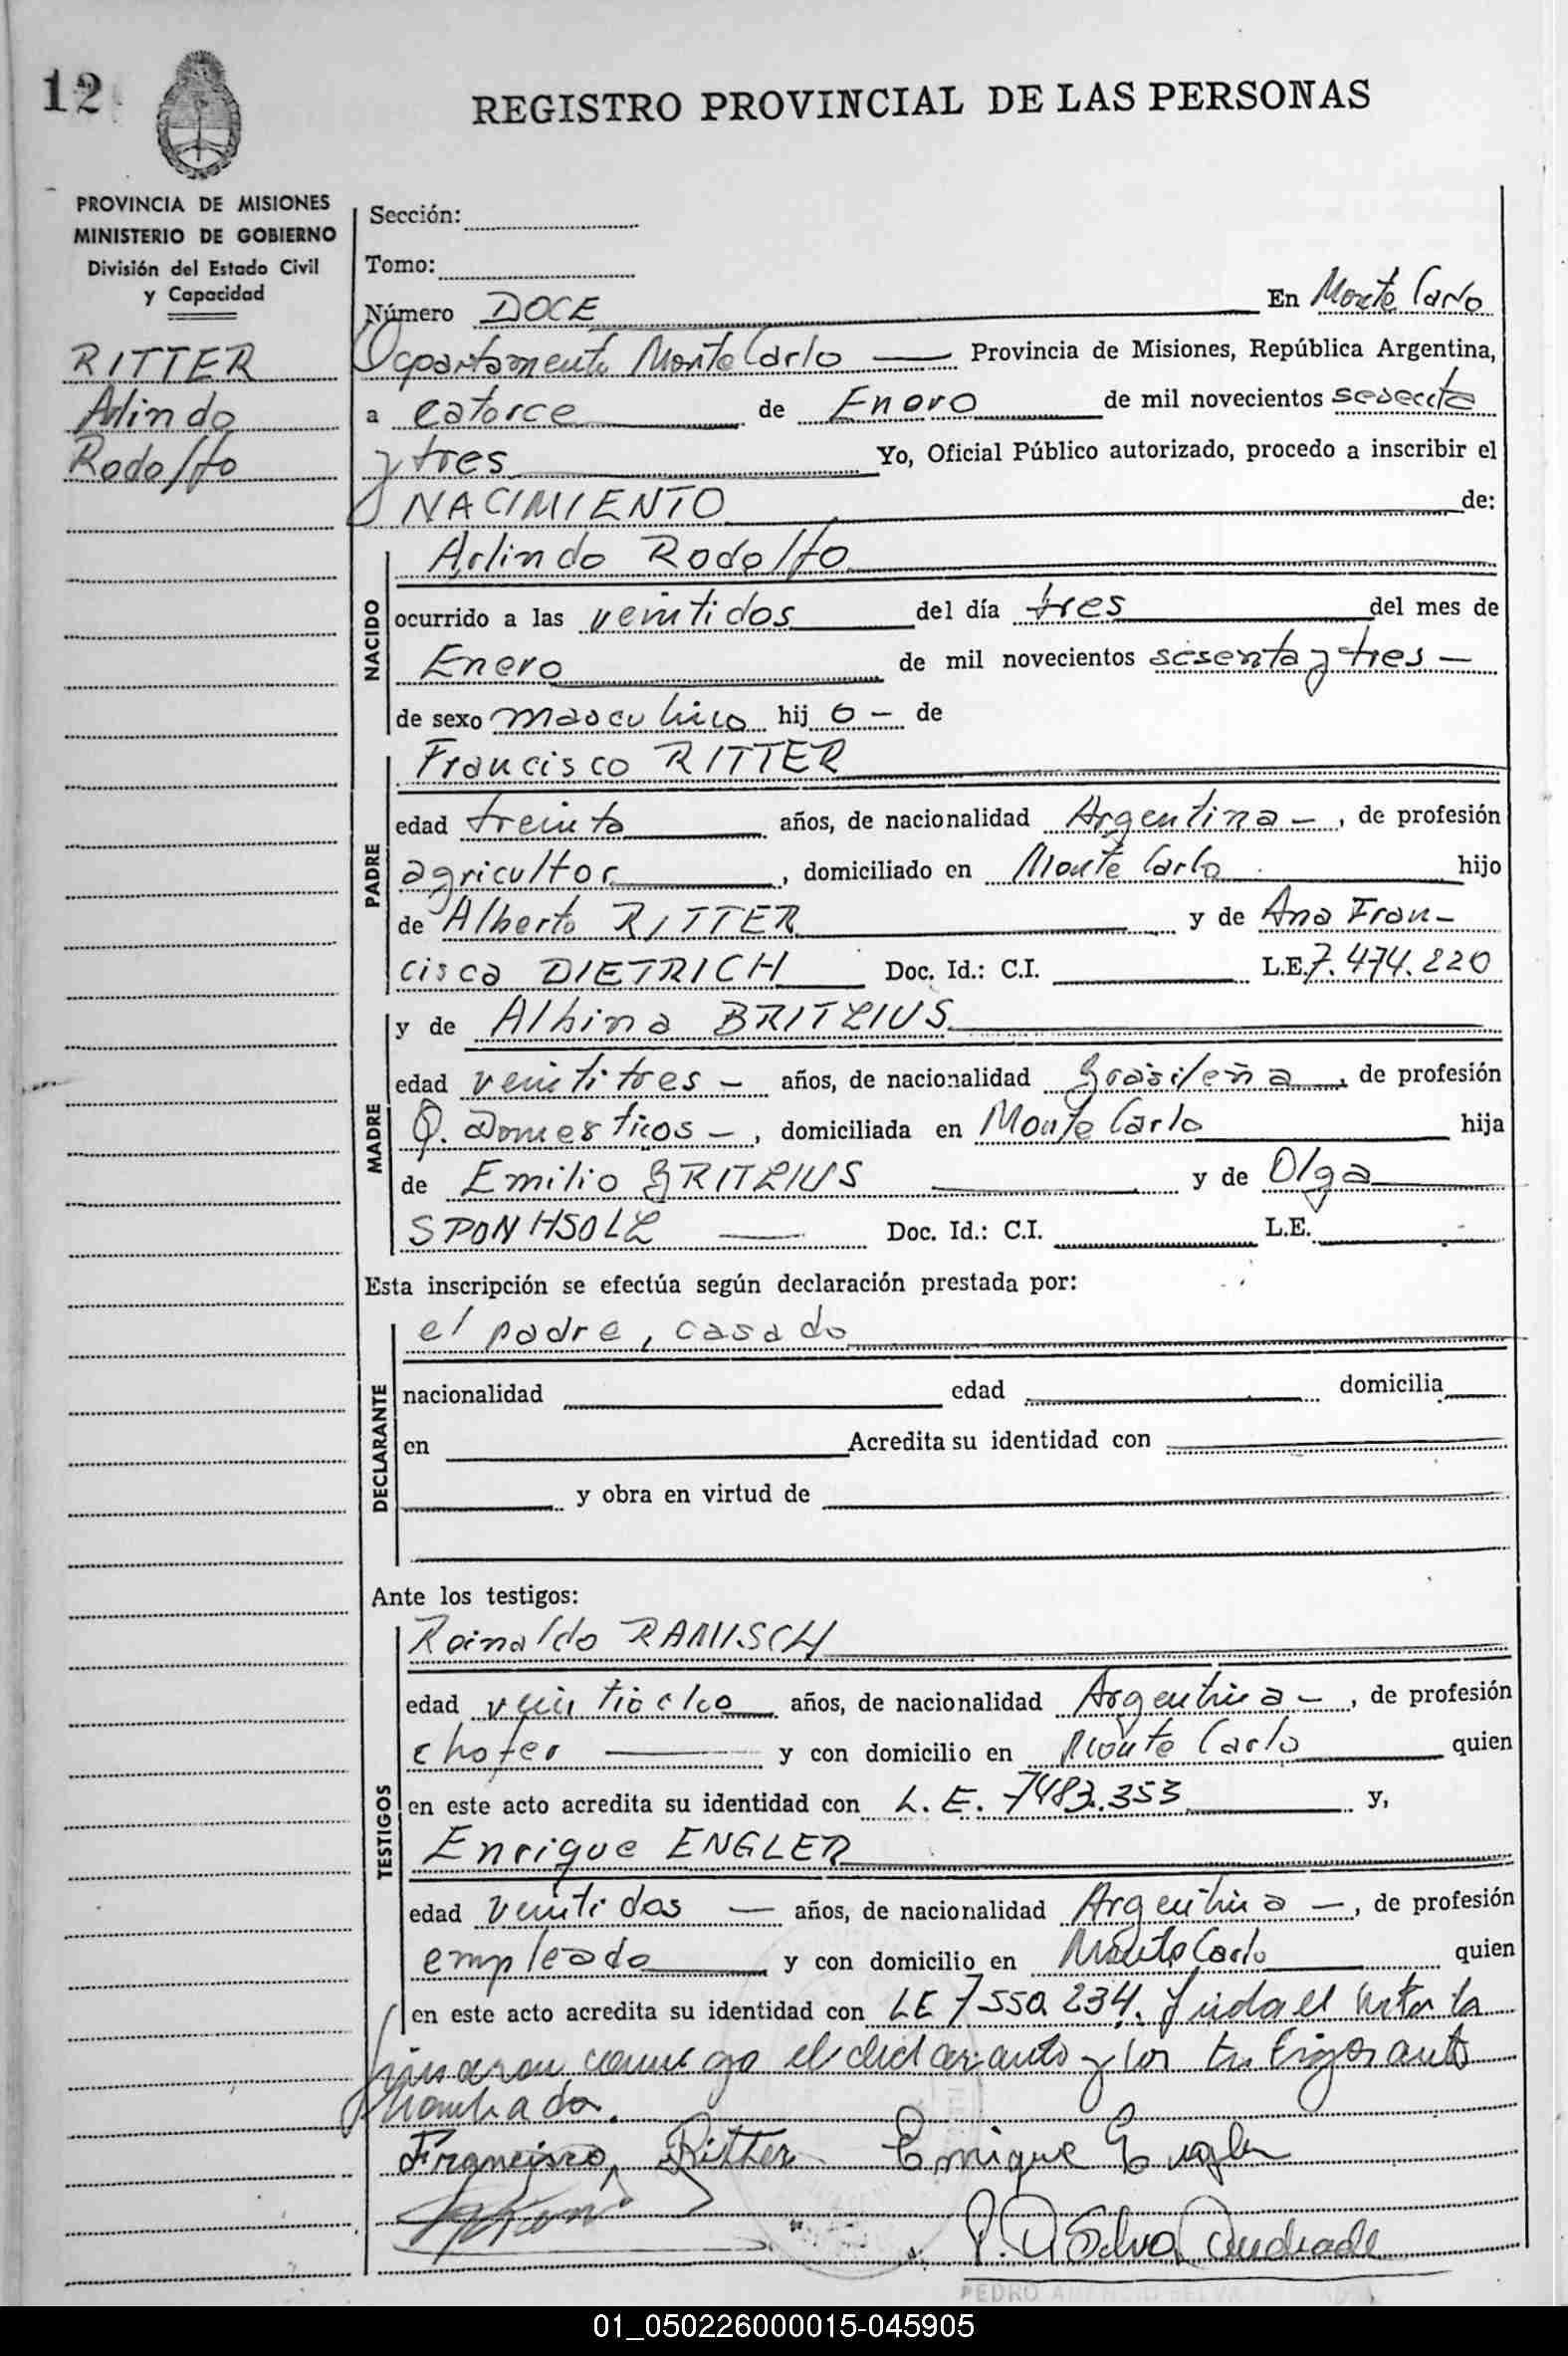 12
REGISTRO PROVINCIAL DE LAS PERSONAS
PROVINCIA DE MISIONES
MINISTERIO DE GOBIERNO
División del Estado Civil
y Capacidad
RITTER
Arlindo
Rodolfo
Sección:
Tomo:
Número DOCE En Monte Carlo
Departamento Monte Carlo Provincia de Misiones, República Argentina,
a catorce de Enero de mil novecientos sesenta
y tres Yo, Oficial Público autorizado, procedo a inscribir el
NACIMIENTO de:
NACIDO
Arlindo Rodolfo
ocurrido a las veintidos del día tres del mes de
Enero de mil novecientos sesenta y tres —
de sexo masculino hij o — de
PADRE
Francisco RITTER
edad treinta años, de nacionalidad Argentina —, de profesión
agricultor, domiciliado en Monte Carlo hijo
de Alberto RITTER y de Ana Fran-
cisca DIETRICH Doc. Id.: C.I. L.E. 7.474.220
MADRE
y de Albina BRITZIUS
edad veintitres — años, de nacionalidad brasileña, de profesión
Q. Domesticos —, domiciliada en Monte Carlo hija
de Emilio BRITZIUS y de Olga
SPONHSOLZ Doc. Id.: C.I. L.E.
Esta inscripción se efectúa según declaración prestada por:
DECLARANTE
el padre, casado
nacionalidad edad domicilia
en Acredita su identidad con
y obra en virtud de
Ante los testigos:
TESTIGOS
Reinaldo RAMISCH
edad veintiocho años, de nacionalidad Argentina —, de profesión
chofer y con domicilio en Monte Carlo quien
en este acto acredita su identidad con L. E. 7483.353 y,
Enrique ENGLER
edad veintidos — años, de nacionalidad Argentina —, de profesión
empleado y con domicilio en Monte Carlo quien
en este acto acredita su identidad con LE 7550.234. Leida el acta la
firmaron conmigo el declarante y los testigos ante
nombrados.
Francisco Ritter Enrique Engler
P. A Selva Andrade
PEDRO
01_050226000015-045905